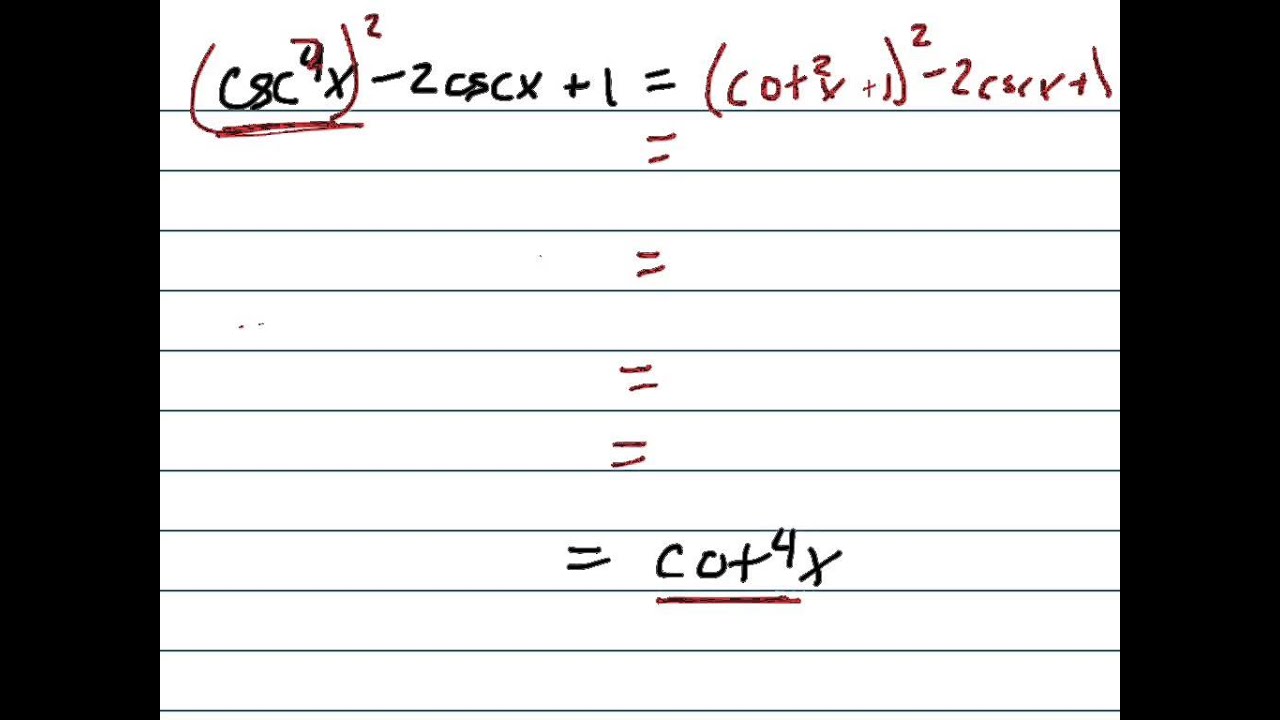 (csc⁴x)² - 2cscx + 1 = (cot²x + 1)² - 2cscx + 1
=
=
=
=
= cot⁴x